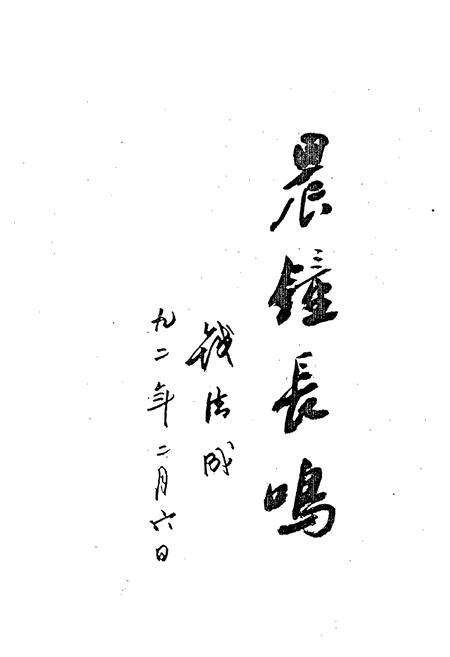 晨鐘長鳴
钱法成
九二年二月六日